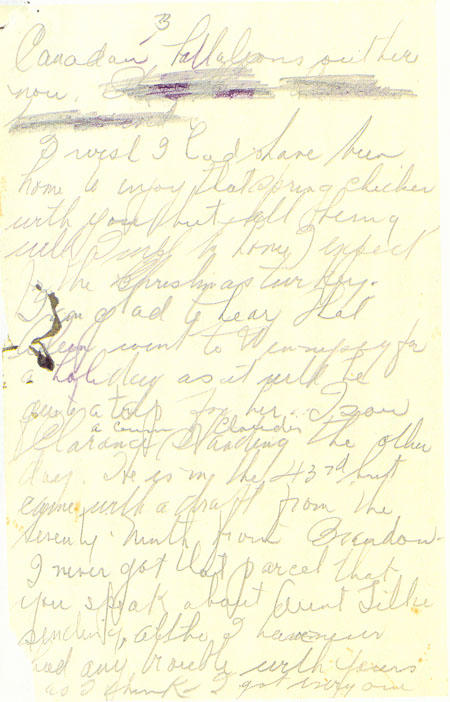 3
Canadian Battalions out here
now.
I wish I could have been
home to enjoy that spring chicken
with you but all being
well I will be home I expect
for the Christmas turkey.
I am glad to hear that
went to Winnipeg for
a holiday as it will be
quite a trip for her. I saw
a cousin of Claudes
Clarence Standing the other
day. He is in the 43rd but
came with a draft from the
Seventy Ninth from Brandon.
I never got that parcel that
you speak about Aunt Tillie
sending, altho I have never
had any trouble with yours
as I think I got every one